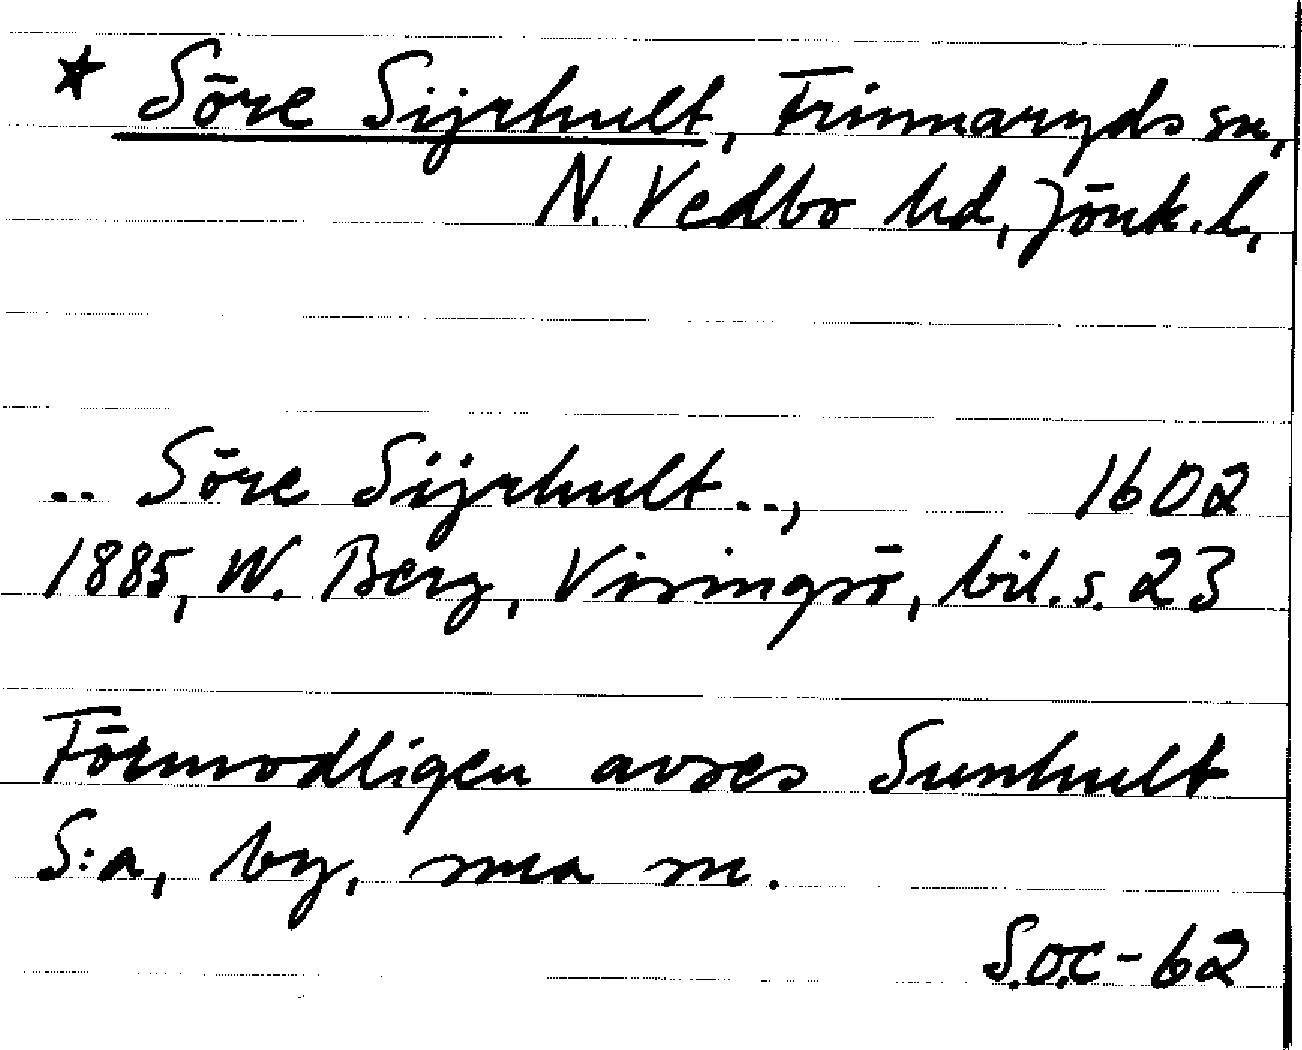 * Söre Sijrhult, Frinnaryds sn,
N. Vedbo hd, Jönk. l,
.. Söre Sijrhult..,
1602
1885, W. Berg, Visingsö, bil. s. 23
Förmodligen avses Sunhult
S:a, by, sma sn.
S.O.C-62